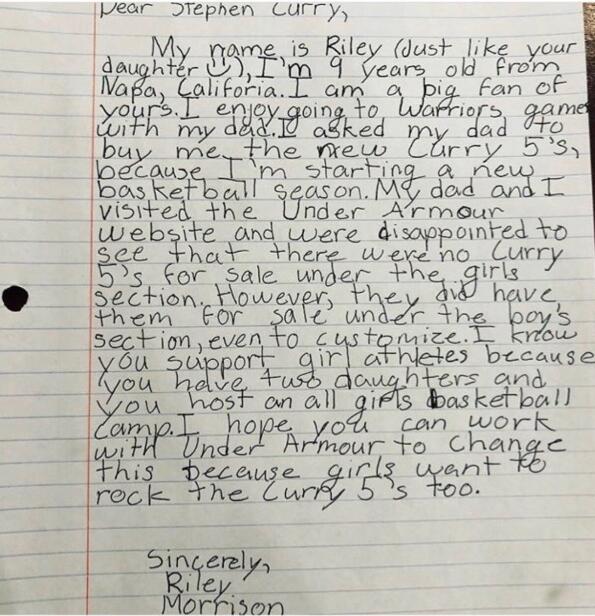 Dear Stephen Curry,
My name is Riley (Just like your
daughter☺), I'm 9 years old from
Napa, Califoria. I am a big fan of
yours. I enjoy going to Warriors game
with my dad. I asked my dad to
buy me the new Curry 5's,
because I'm starting a new
basketball season. My dad and I
visited the Under Armour
website and were disappointed to
see that there were no Curry
5's for sale under the girls
section. However, they did have
them for sale under the boy's
section, even to customize. I know
you support girl athletes because
you have two daughters and
you host an all girls basketball
camp. I hope you can work
with Under Armour to change
this because girls want to
rock the Curry 5's too.
Sincerely,
Riley
Morrison